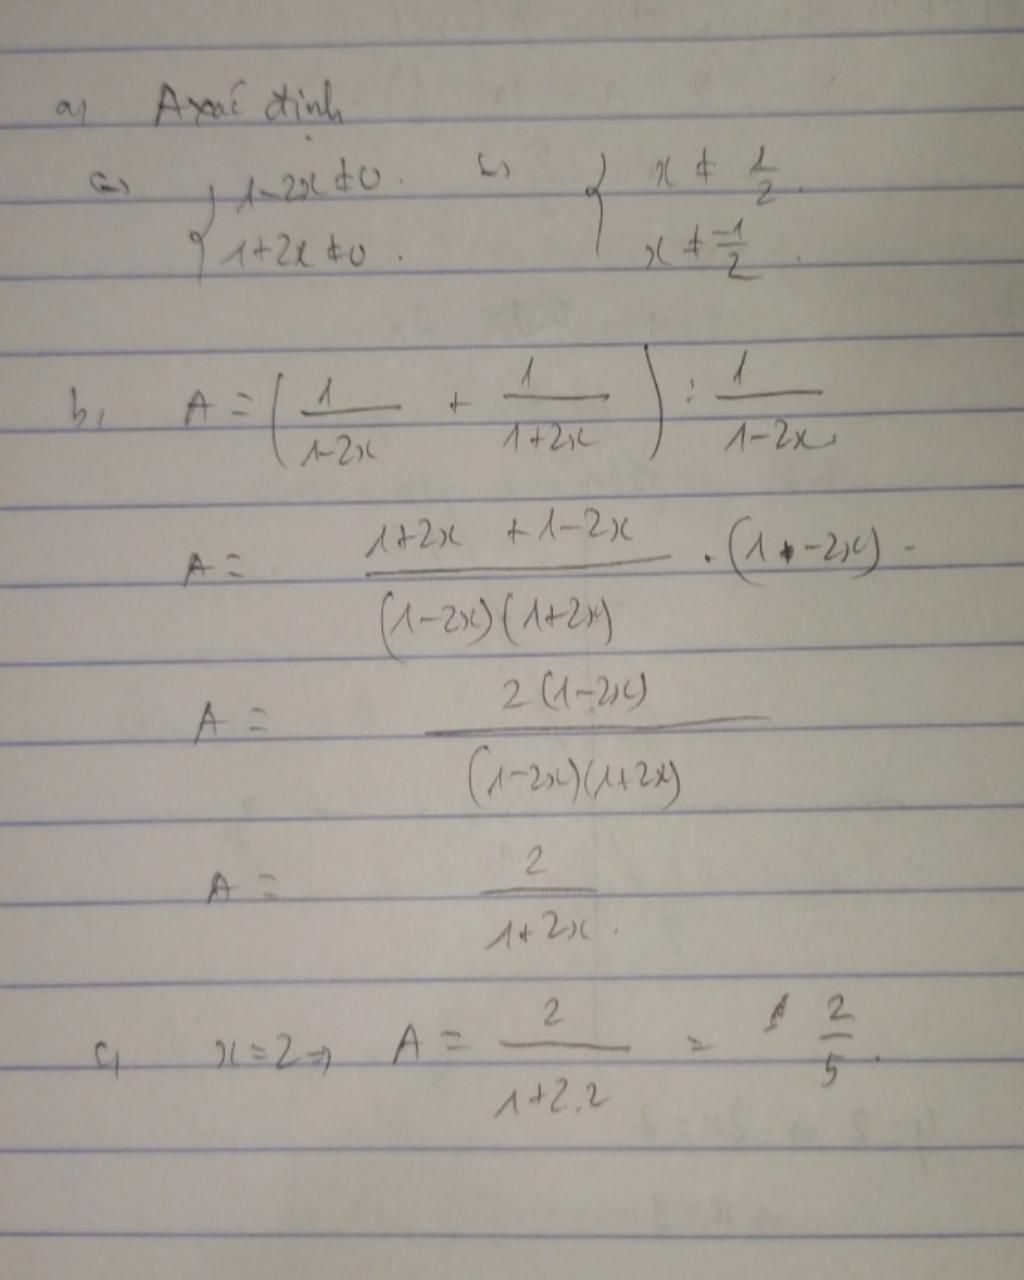 a, A xác định
<=> { 1-2x ≠ 0 . <=> { x ≠ 1/2 .
1+2x ≠ 0 . x ≠ -1/2 .
b, A = ( 1/(1-2x) + 1/(1+2x) ) : 1/(1-2x)
A = (1+2x +1-2x)/((1-2x)(1+2x)) . (1-2x)
A = 2(1-2x)/((1-2x)(1+2x))
A = 2/(1+2x) .
c, x=2 => A = 2/(1+2.2) = 2/5 .